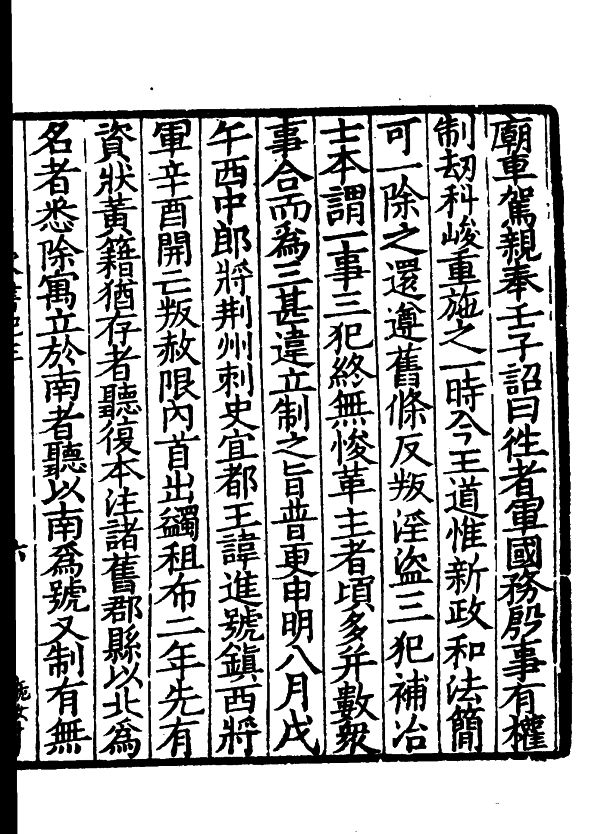 廟車駕親奉壬子詔曰徃者軍國務殷事有權
制刧科峻重施之一時今王道惟新政和法簡
可一除之還遵舊條反叛淫盜三犯補冶
士本謂一事三犯終無悛革主者頃多并數衆
事合而爲三甚違立制之旨普更申明八月戊
午西中郎將荆州刺史宜都王諱進號鎮西將
軍辛酉開亡叛赦限內首出蠲租布二年先有
資狀黃籍猶存者聽復本注諸舊郡縣以北爲
名者悉除寓立於南者聽以南爲號又制有無
六